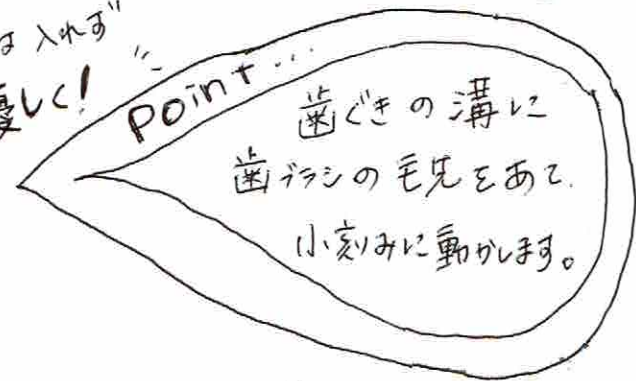 は 入れず
優しく!
Point...
歯ぐきの溝に
歯ブラシの毛先をあて、
小刻みに動かします。